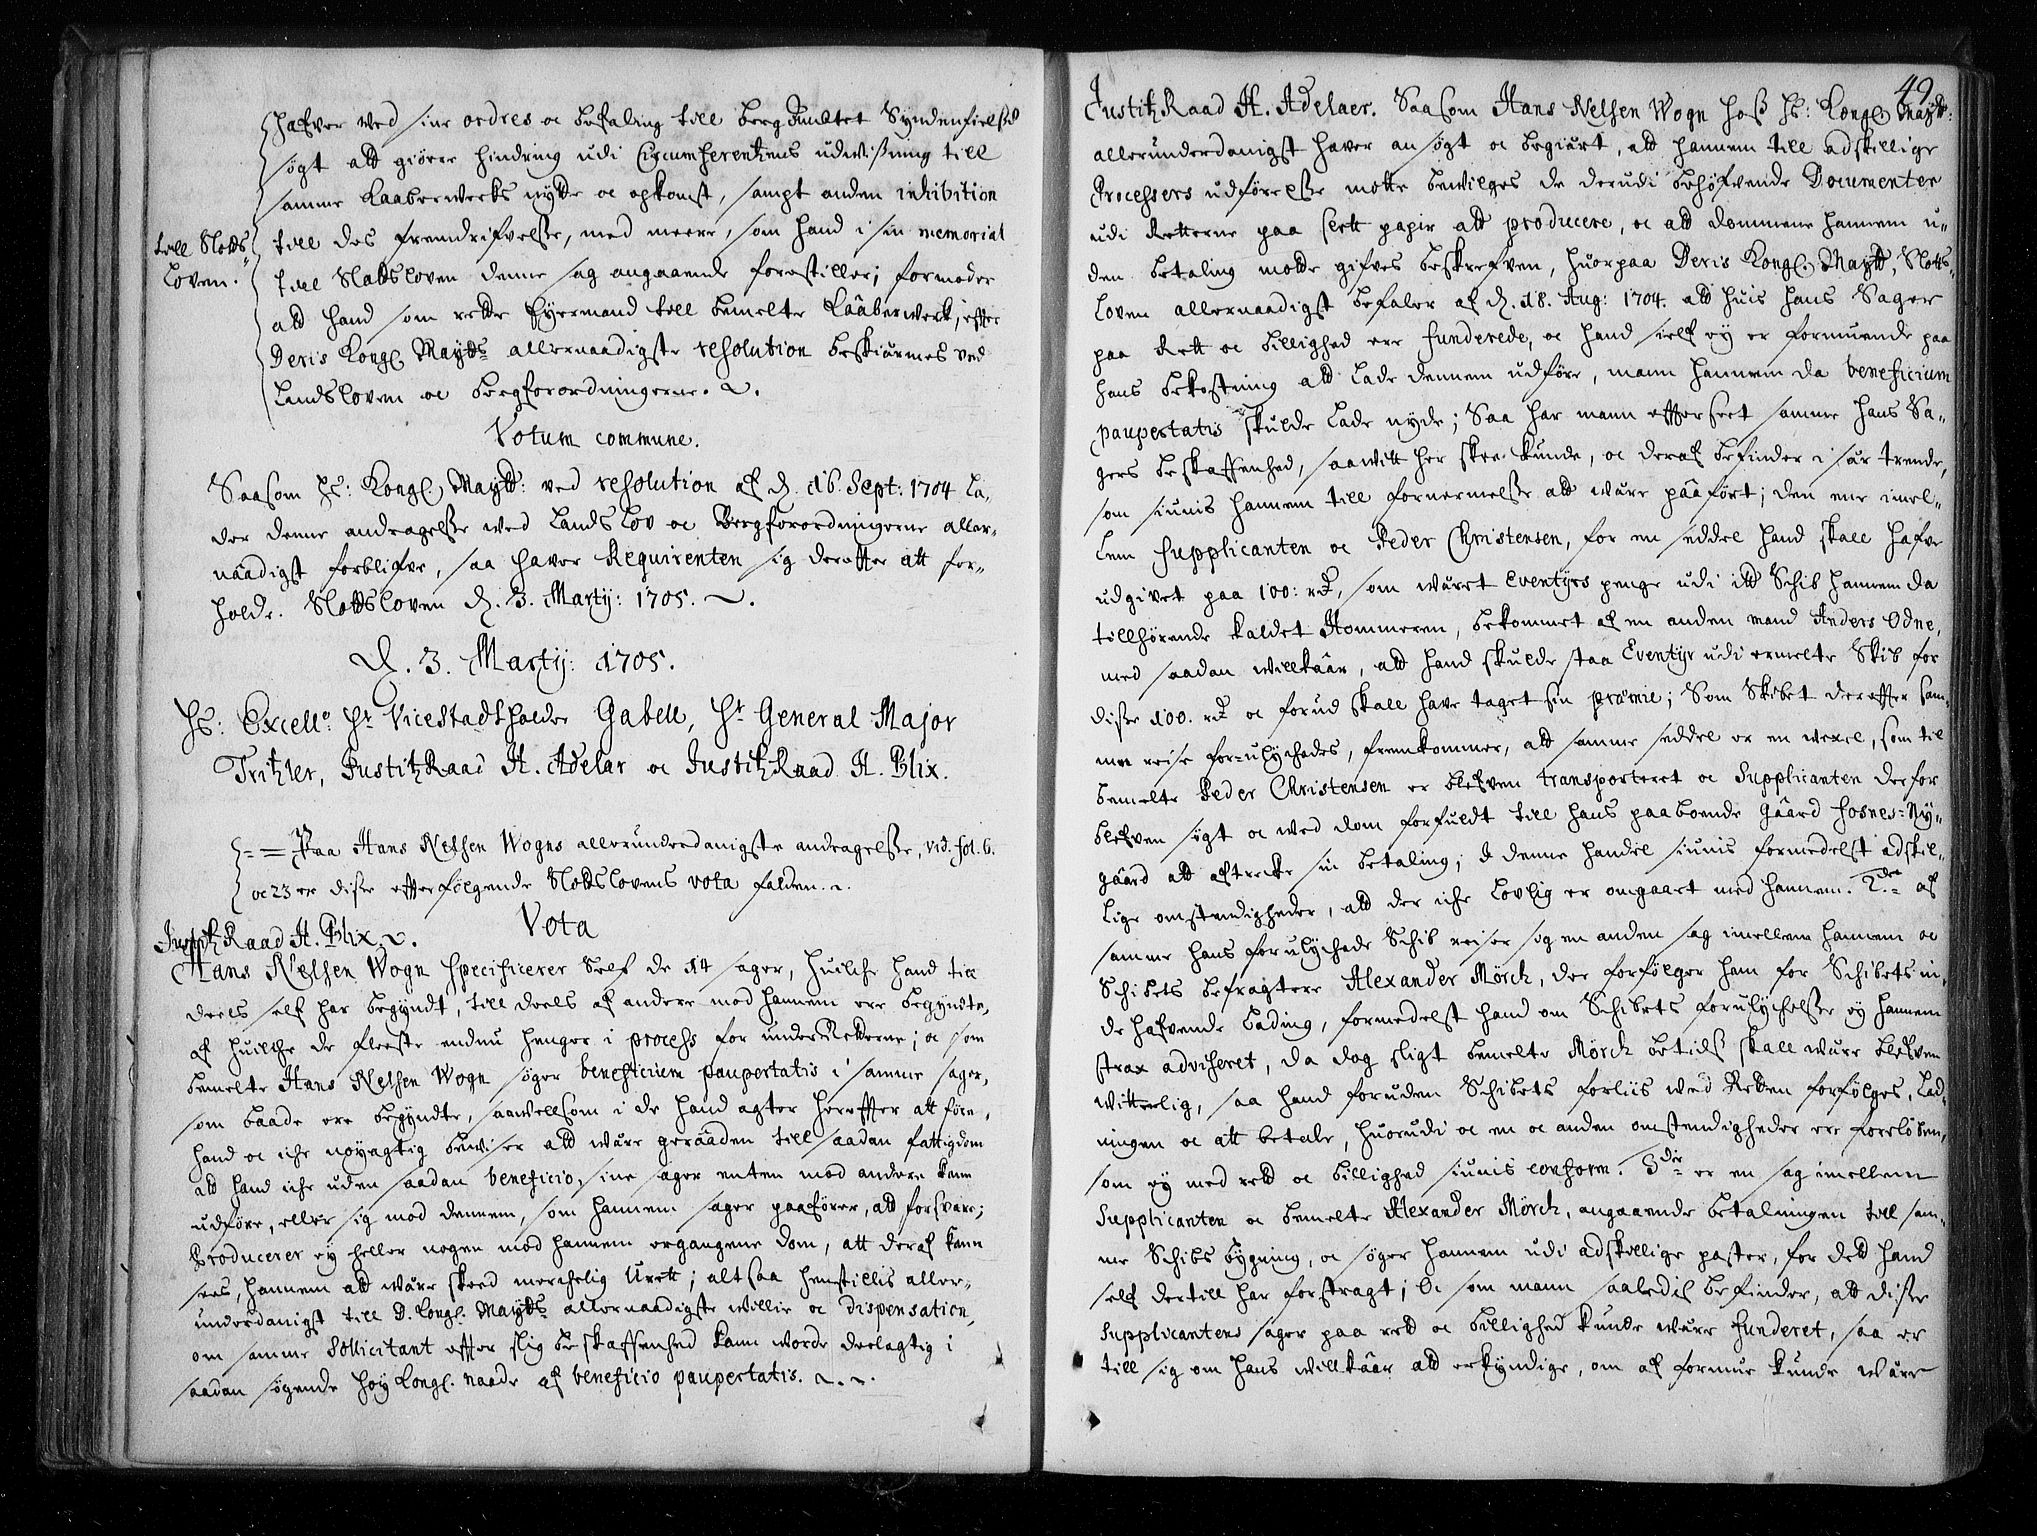 hafver ved sine ordres oc befaling till bergAmbtet Syndenfields
søgt att giøre hindring udi Circumferentzens udwiszning till
samme Kaaberwercks nytte oc opkomst, sampt anden inhibition
till des fremdrifvelsse, med meere, som hand i sin memorial
till Slotts-
Loven.
till Slottsloven denne sag angaaende forestiller; formoder
att hand som rette Eyermand till bemelte Kaaberwerck, effter
Deris Kongl. Maytts allernaadigste resolution beskiermes ved
Landsloven oc bergforordningerne.
Votum commune.
Saasom Hs: Kongl. Maytt: ved resolution af d. 16. Sept: 1704 La-
der denne andragelsse wed Lands Lov oc Bergforordningerne aller-
naadigst forblifve, saa haver Requirenten sig dereffter att for-
holde. Slottsloven d. 3. Martij: 1705.
D. 3. Martij: 1705.
Hs: Excell. Hr Vicestadtholder Gabell, Hr General Major
Tritzler, JustitzRaad H. Adelar oc JustitzRaad H. Blix.
Paa Hans Nelsen Wogns allerunderdanigste andragelsse, vid. fol. 6.
oc 23 er disse effterfølgende Slottslovens vota falden.
Vota
JustitzRaad H. Blix.
Hans Nelsen Wogn specificerer Self de 14 sager, huilche hand till
deels self har begyndt, till deels af andere mod hannem ere begyndte,
af huilche de fleeste endnu henger i process for underRetterne; oc som
bemelte Hans Nelsen Wogn søger beneficium paupertatis i samme sager,
som baade ere begyndte, saawellsom i de hand agter hereffter att føre,
hand oc iche nøyagtig bewiser att wære geraaden till saadan fattigdom
att hand iche uden saadan beneficio, sine sager enten mod andere kann
udføre, eller sig mod dennem, som hannem sager paafører, att forsvare;
Producerer ey heller nogen mod hannem ergangene dom, att deraf kann
sees, hannem att være skeed merchelig Urett; altsaa henstillis aller-
underdanigst till D. Kongl. Maytts allernaadigste willie oc dispensation,
om samme Sollicitant effter slig beskaffenhed kann worde deelagtig i
saadan søgende høy Kongl. naade af beneficio paupertatis.
49
JustitzRaad H. Adelaer. Saasom Hans Nelsen Wogn hosz Hs: Kongl. Maytt:
allerunderdanigst haver ansøgt oc begiært, att hannem till adskellige
Processers udførelsse motte bewilges de derudi behøfvende Documenter
udi Retterne paa slett papir att producere, oc att dommene hannem u-
den betaling motte gifves beskrefven, huorpaa Deris Kongl. Maytt, Slotts-
Loven allernaadigst befaler af d. 18. Aug: 1704. att huis hans Sager
paa Rett oc billighed ere funderede, oc hand self ey er formuende paa
hans bekostning att lade dennem udføre, mann hannem da beneficium
paupertatis skulde lade nyde; Saa har mann efftersect samme hans Sa-
gers beskaffenhed, saawitt her skee kunde, oc deraf befinder i sær trende,
som siunis hannem till fornermelsse att wære paaført; den ene imel-
lem Supplicanten oc Peder Christensen, for en seddel hand skall hafve
udgivet paa 100: rd, som wæret Eventyrs penge udi itt Schib hannem da
tillhørende kaldet Hommeren, bekommet af en anden mand Anders Odne,
med saadan willkaar, att hand skulde staa Eventyr udi ermelte Skib for
disse 100. rd oc forud skall have taget sin præmie; Som Skibet dereffter sam-
me reise for-ulychedes, fremkommer, att samme seddel er en wexel, som til
bemelte Peder Christensen er blefven transporteret oc Supplicanten derfor
blefven søgt oc wed dom forfuldt till hans paaboende Gaard Fosnes-Ny-
gaard att aftrecke sin betaling; I denne handel siunis formedelst adskel-
lige omstendigheder, att der iche Lovlig er omgaaet med hannem. 2de af
samme hans forulychede Schib reiser sig en anden sag imellem hannem oc
Schibets befragtere Alexander Mørch, der forfølger ham for Schibets in-
de hafvende Lading, formedelst hand om Schibets forulychelsse ey hannem
strax adviseret, da dog sligt bemelte Mørch betids skall wære blefven
witterlig, saa hand foruden Schibets forliis wed Retten forfølges, Lad-
ningen oc att betale, huorudi oc en oc anden omstendigheder ere foreløben,
som ey med rett oc billighed siunis conform. 3die er en sag imellem
Supplicanten oc bemelte Alexander Mørch, angaaende betalningen till sam-
me Schibs bygning, oc søger hannem udi adskellige poster, for dett hand
self dertill har forstragt; Oc som mann saaledis befinder, att disse
Supplicantens sager paa rett oc billighed kunde wære funderet, saa er
till sig om hans willkaar att erkyndige, om af formue kunde wære